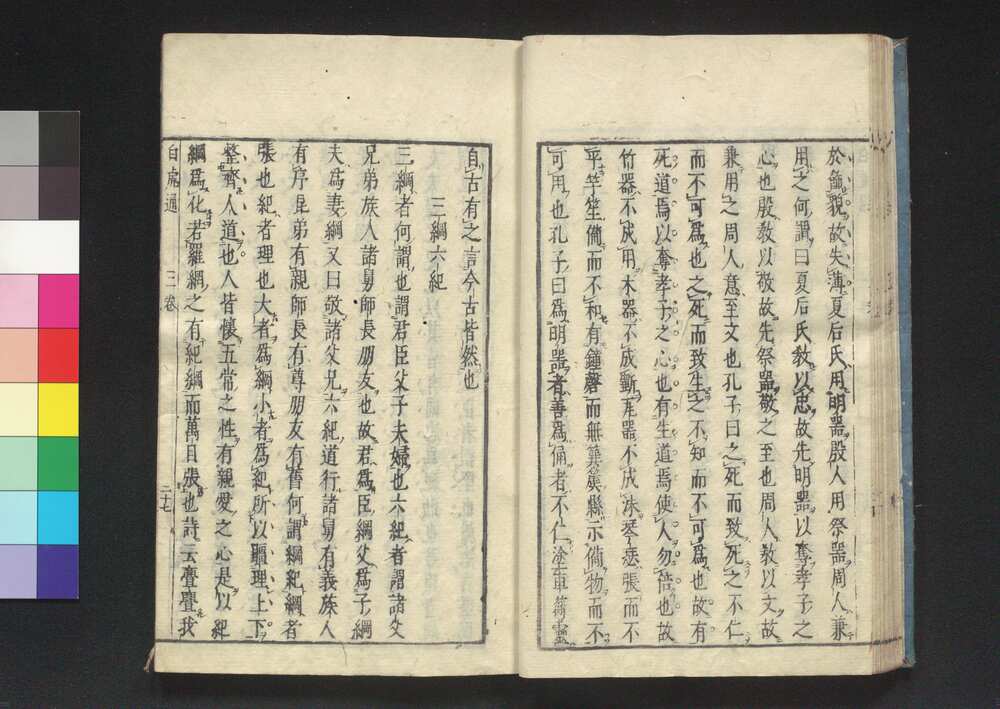 於㑄貌故失薄夏后氏用明器殷人用祭器周人兼
用之何謂曰夏后氏教以忠故先明器以奪孝子之
心也殷教以敬故先祭器敬之至也周人教以文故
兼用之周人意至文也孔子曰之死而致死之不仁
而不可爲也之死而致生之不知而不可爲也故有
死道焉以奪孝子之心也有生道焉使人勿倍也故
竹器不成用木器不成斲瓦器不成沬琴瑟張而不
平竽笙備而不和有鐘磬而無簨簴縣示備物而不
可用也孔子曰爲明器者善爲俑者不仁塗車蒭靈
自古有之言今古皆然也
三綱六紀
三綱者何謂也謂君臣父子夫婦也六紀者謂諸父
兄弟族人諸舅師長朋友也故君爲臣綱父爲子綱
夫爲妻綱又曰敬諸父兄六紀道行諸舅有義族人
有序昆弟有親師長有尊朋友有舊何謂綱紀綱者
張也紀者理也大者爲綱小者爲紀所以疆理上下
整齊人道也人皆懷五常之性有親愛之心是以紀
綱爲化若羅網之有紀綱而萬目張也詩云亹亹我
白虎通 三卷 二十七